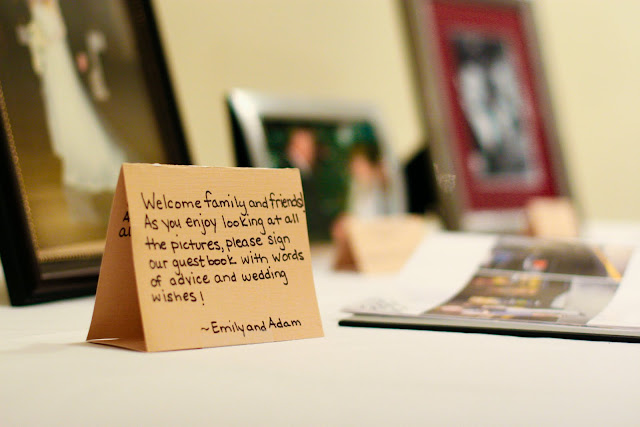 Welcome family and friends!
As you enjoy looking at all
the pictures, please sign
our guestbook with words
of advice and wedding
wishes!
~Emily and Adam